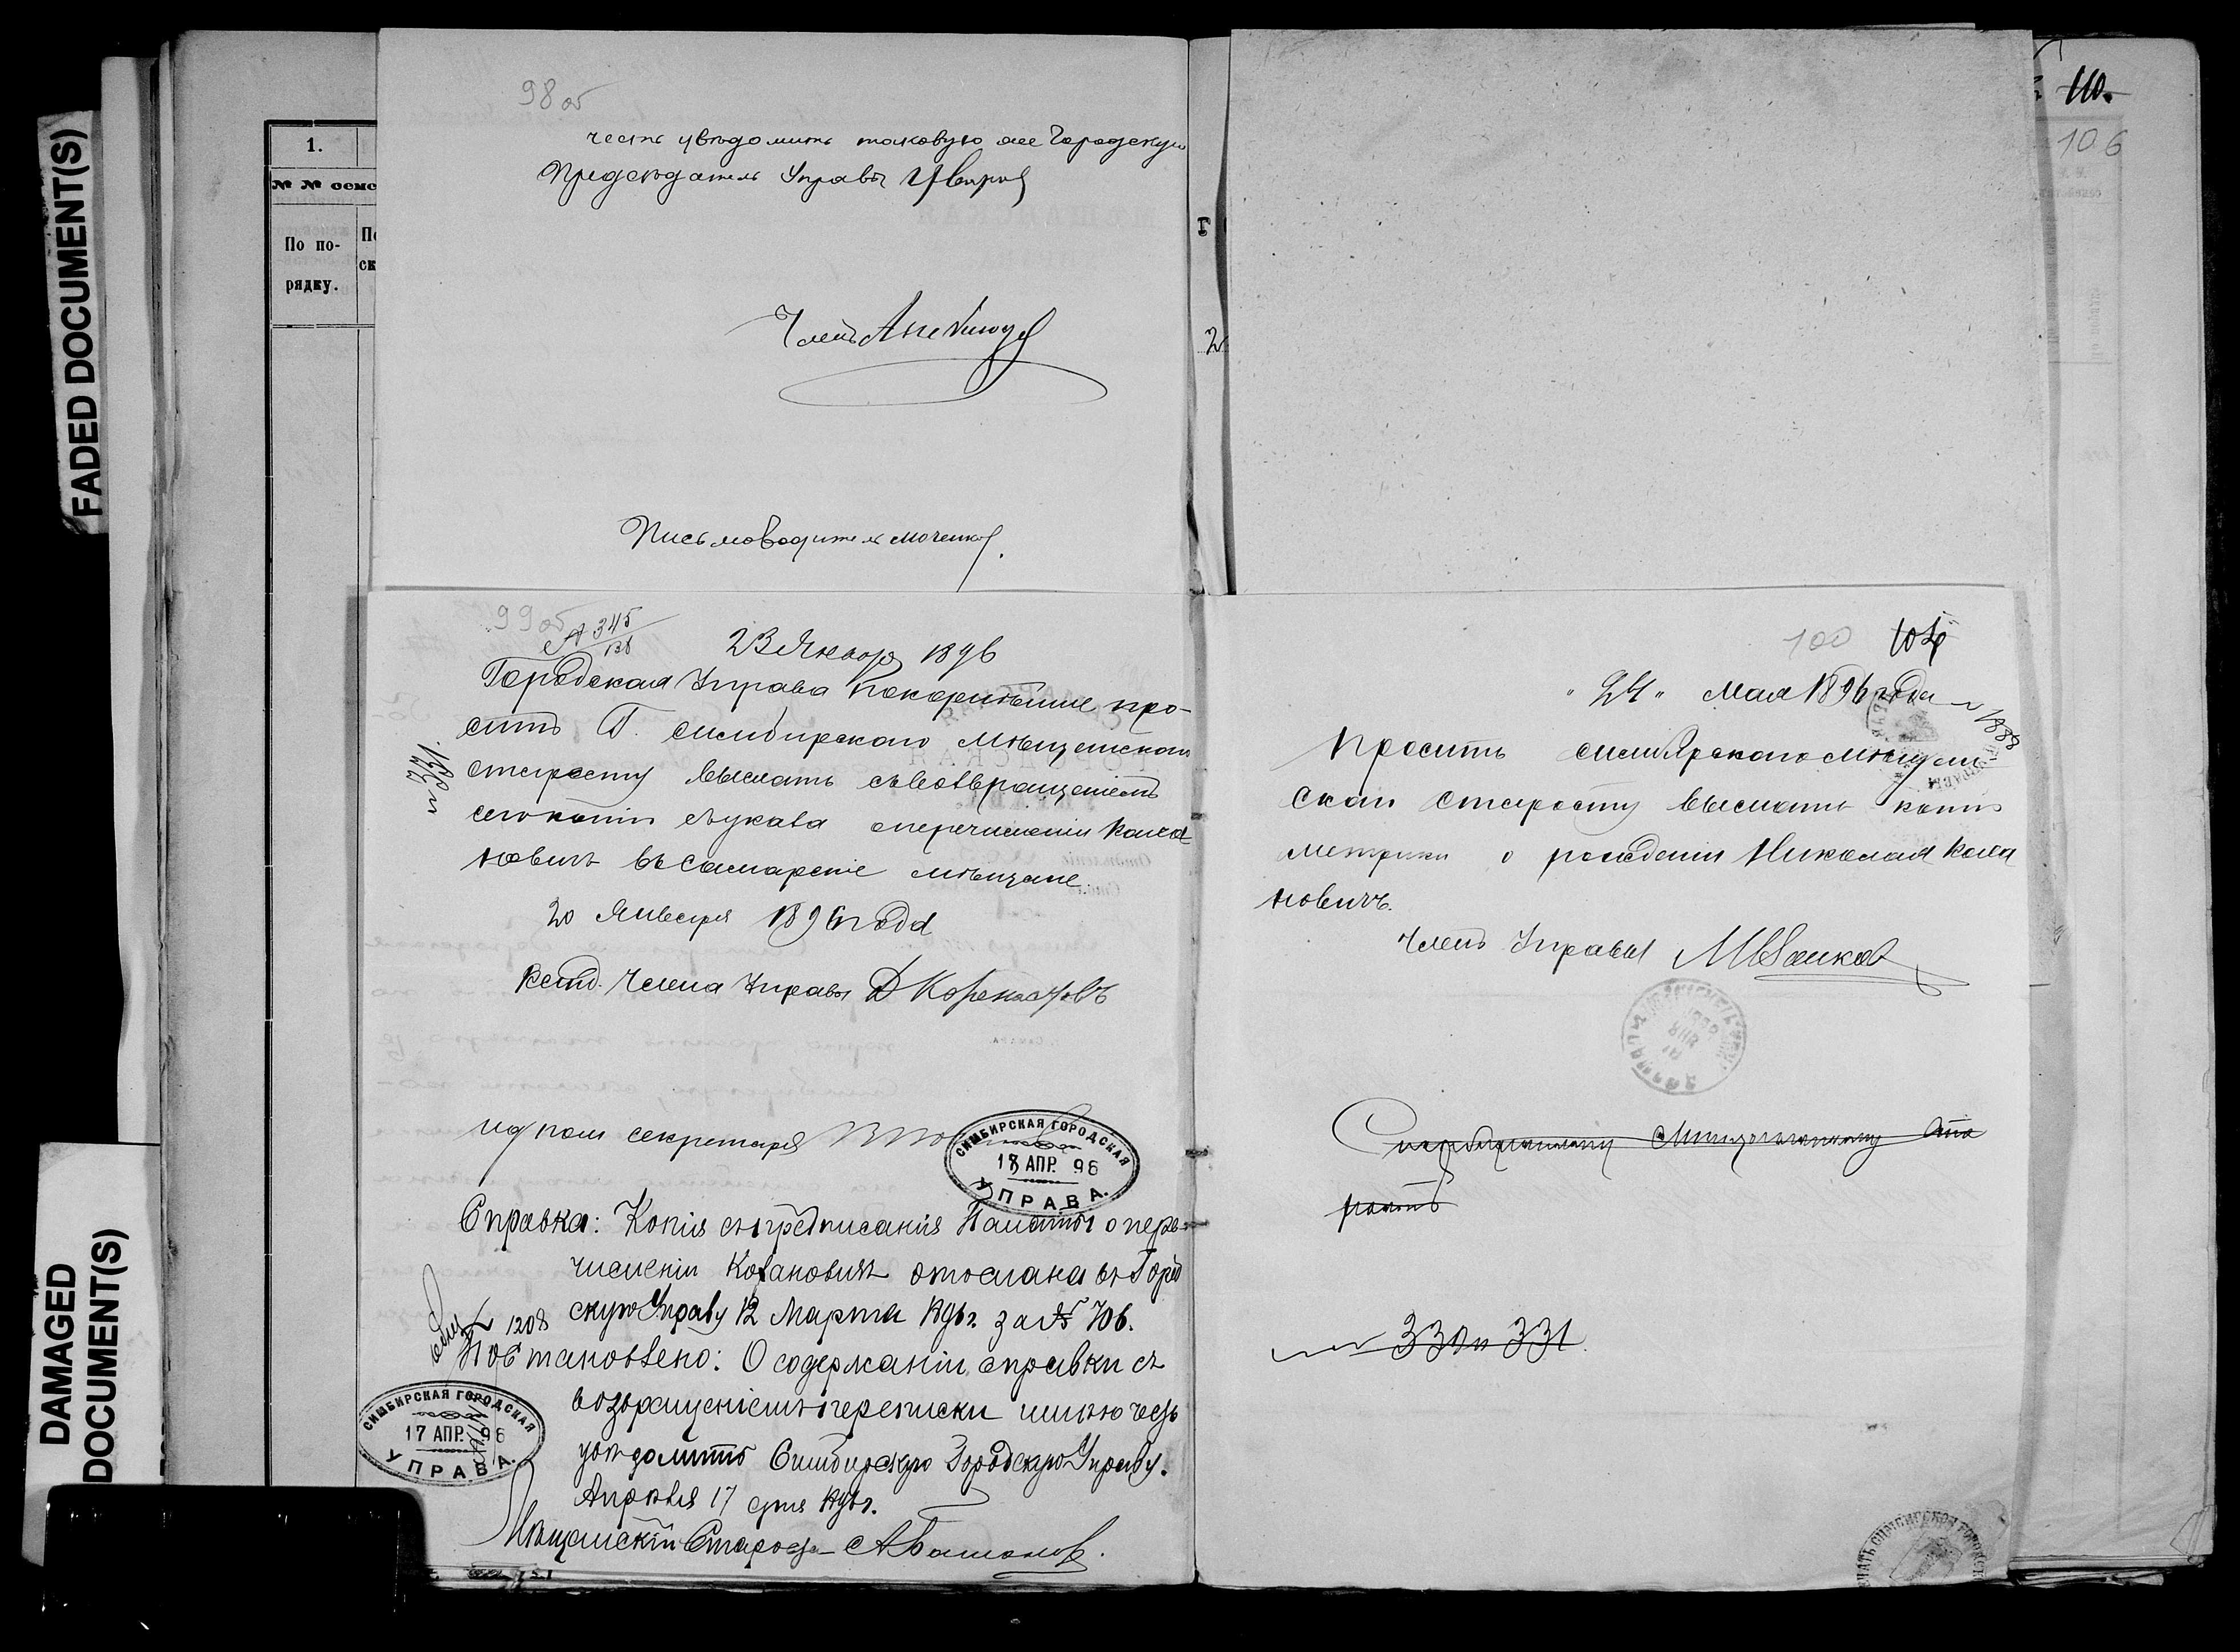 FADED DOCUMENT(S)
DAMAGED
DOCUMENT(S)
1.
№ № семе
По по-
рядку.
По
ск
98 об
честь увѣдомить таковую же Городскую
Предсѣдатель Управы
Членъ
Письмоводитель
99 об
№ 345
23 Января 1896
Городская Управа покорнѣйше про-
ситъ Г. симбирскаго мѣщанскаго
старосту выслать съ возвращеніемъ
сего копію съ указа о перечисленіи Кожа
новичъ въ самарскіе мѣщане.
20 Января 1896 года
№ 331
Члена Управы Д
секретаря
СИМБИРСКАЯ ГОРОДСКАЯ
18 АПР. 96
УПРАВА.
Справка: Копія съ предписанія Палаты о пере-
численіи Кожановичъ отослана въ Город
скую Управу 12 Марта 1896 г. за № 706.
№ 1208
Постановлено: О содержаніи справки съ
возвращеніемъ переписки имѣю честь
увѣдомить Симбирскую Городскую Управу.
Апрѣля 17 дня 1896 г.
СИМБИРСКАЯ ГОРОДСКАЯ
17 АПР. 96
УПРАВА.
Мѣщанскій Староста А
110.
106
100
"24" Мая 1896 года
№ 1888
Проситъ симбирскаго мѣщан-
скаго старосту выслать копію
метрики о рожденіи Николая Кожа
новичъ.
Членъ Управы М
Симбирскому Мѣщанскому Ста
ростѣ
№ 330 и 331
ПЕЧАТЬ СИМБИРСКОЙ ГОРОДСК